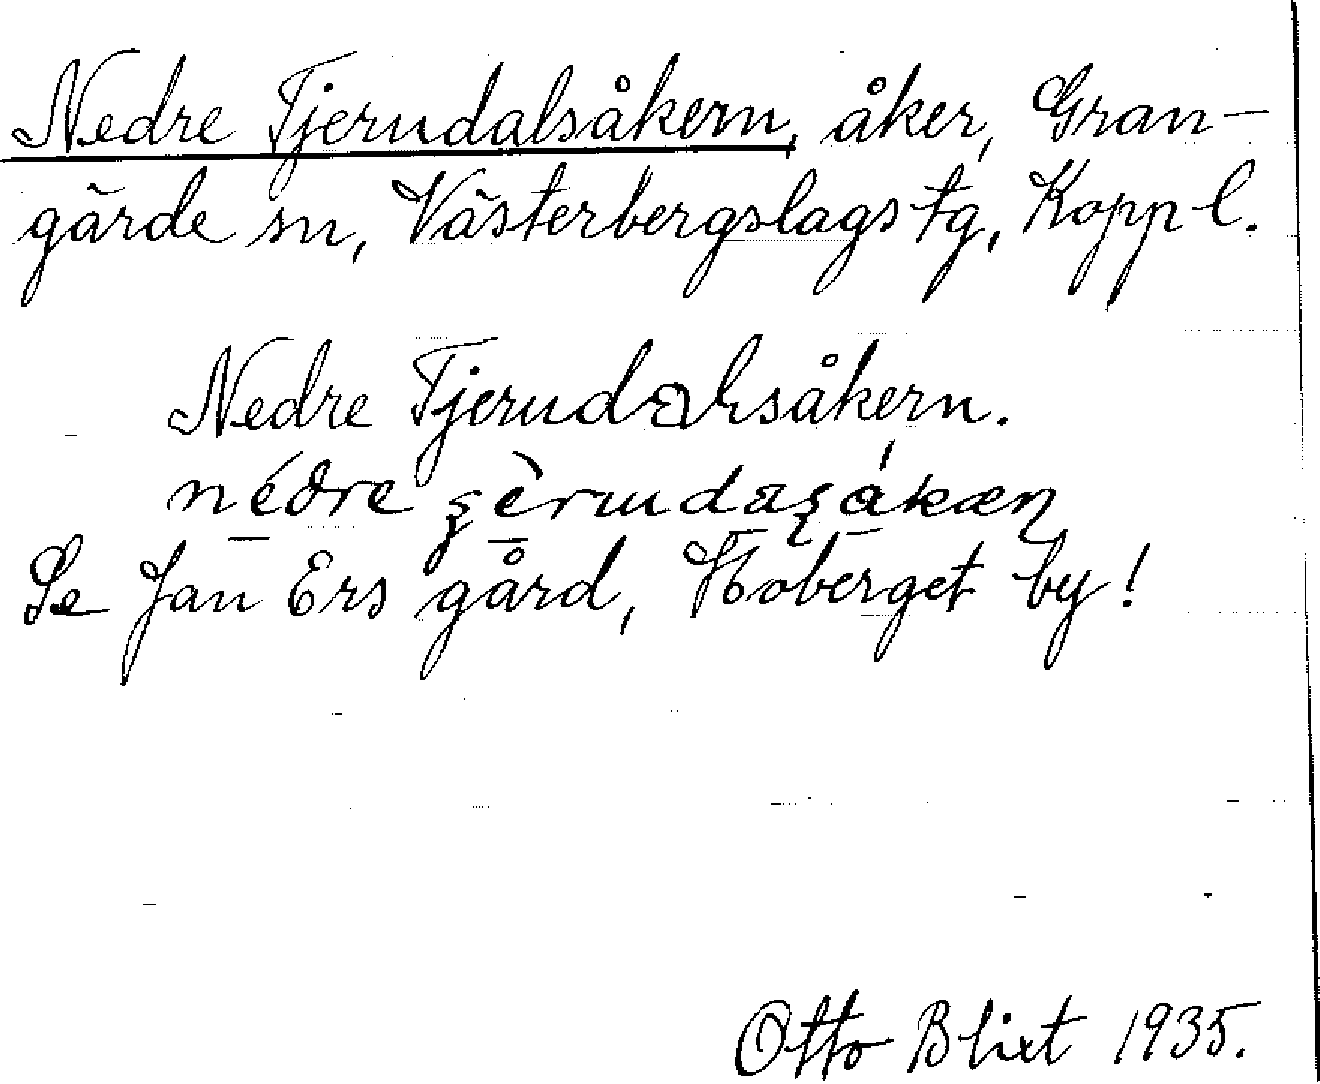 Nedre Tjerndalsåkern, åker, Gran-
gärde sn, Västerbergslags tg, Kopp l.
Nedre Tjerndalsåkern.
Se Jan Ers gård, Hoberget by!
Otto Blixt 1935.